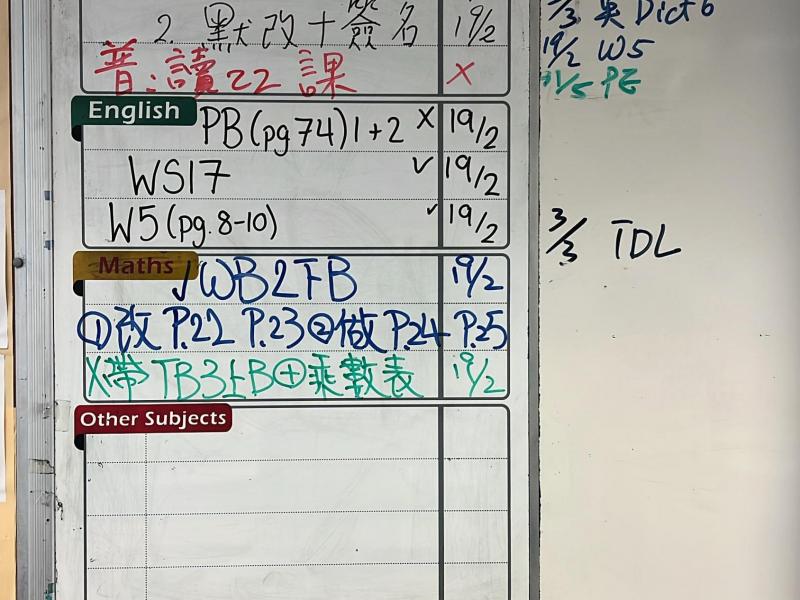 2. 默改+簽名 19/2
普:讀22課 x
English
PB(pg 74) 1+2 x 19/2
WS17 ✓ 19/2
W5 (pg. 8-10) ✓ 19/2
Maths
✓WB2下B 19/2
①改 P.22 P.23 ②做 P.24 P.25
X帶TB3上B⊕乘數表 19/2
Other Subjects
Dict 6
19/2 W5
PE
3/3 TDL